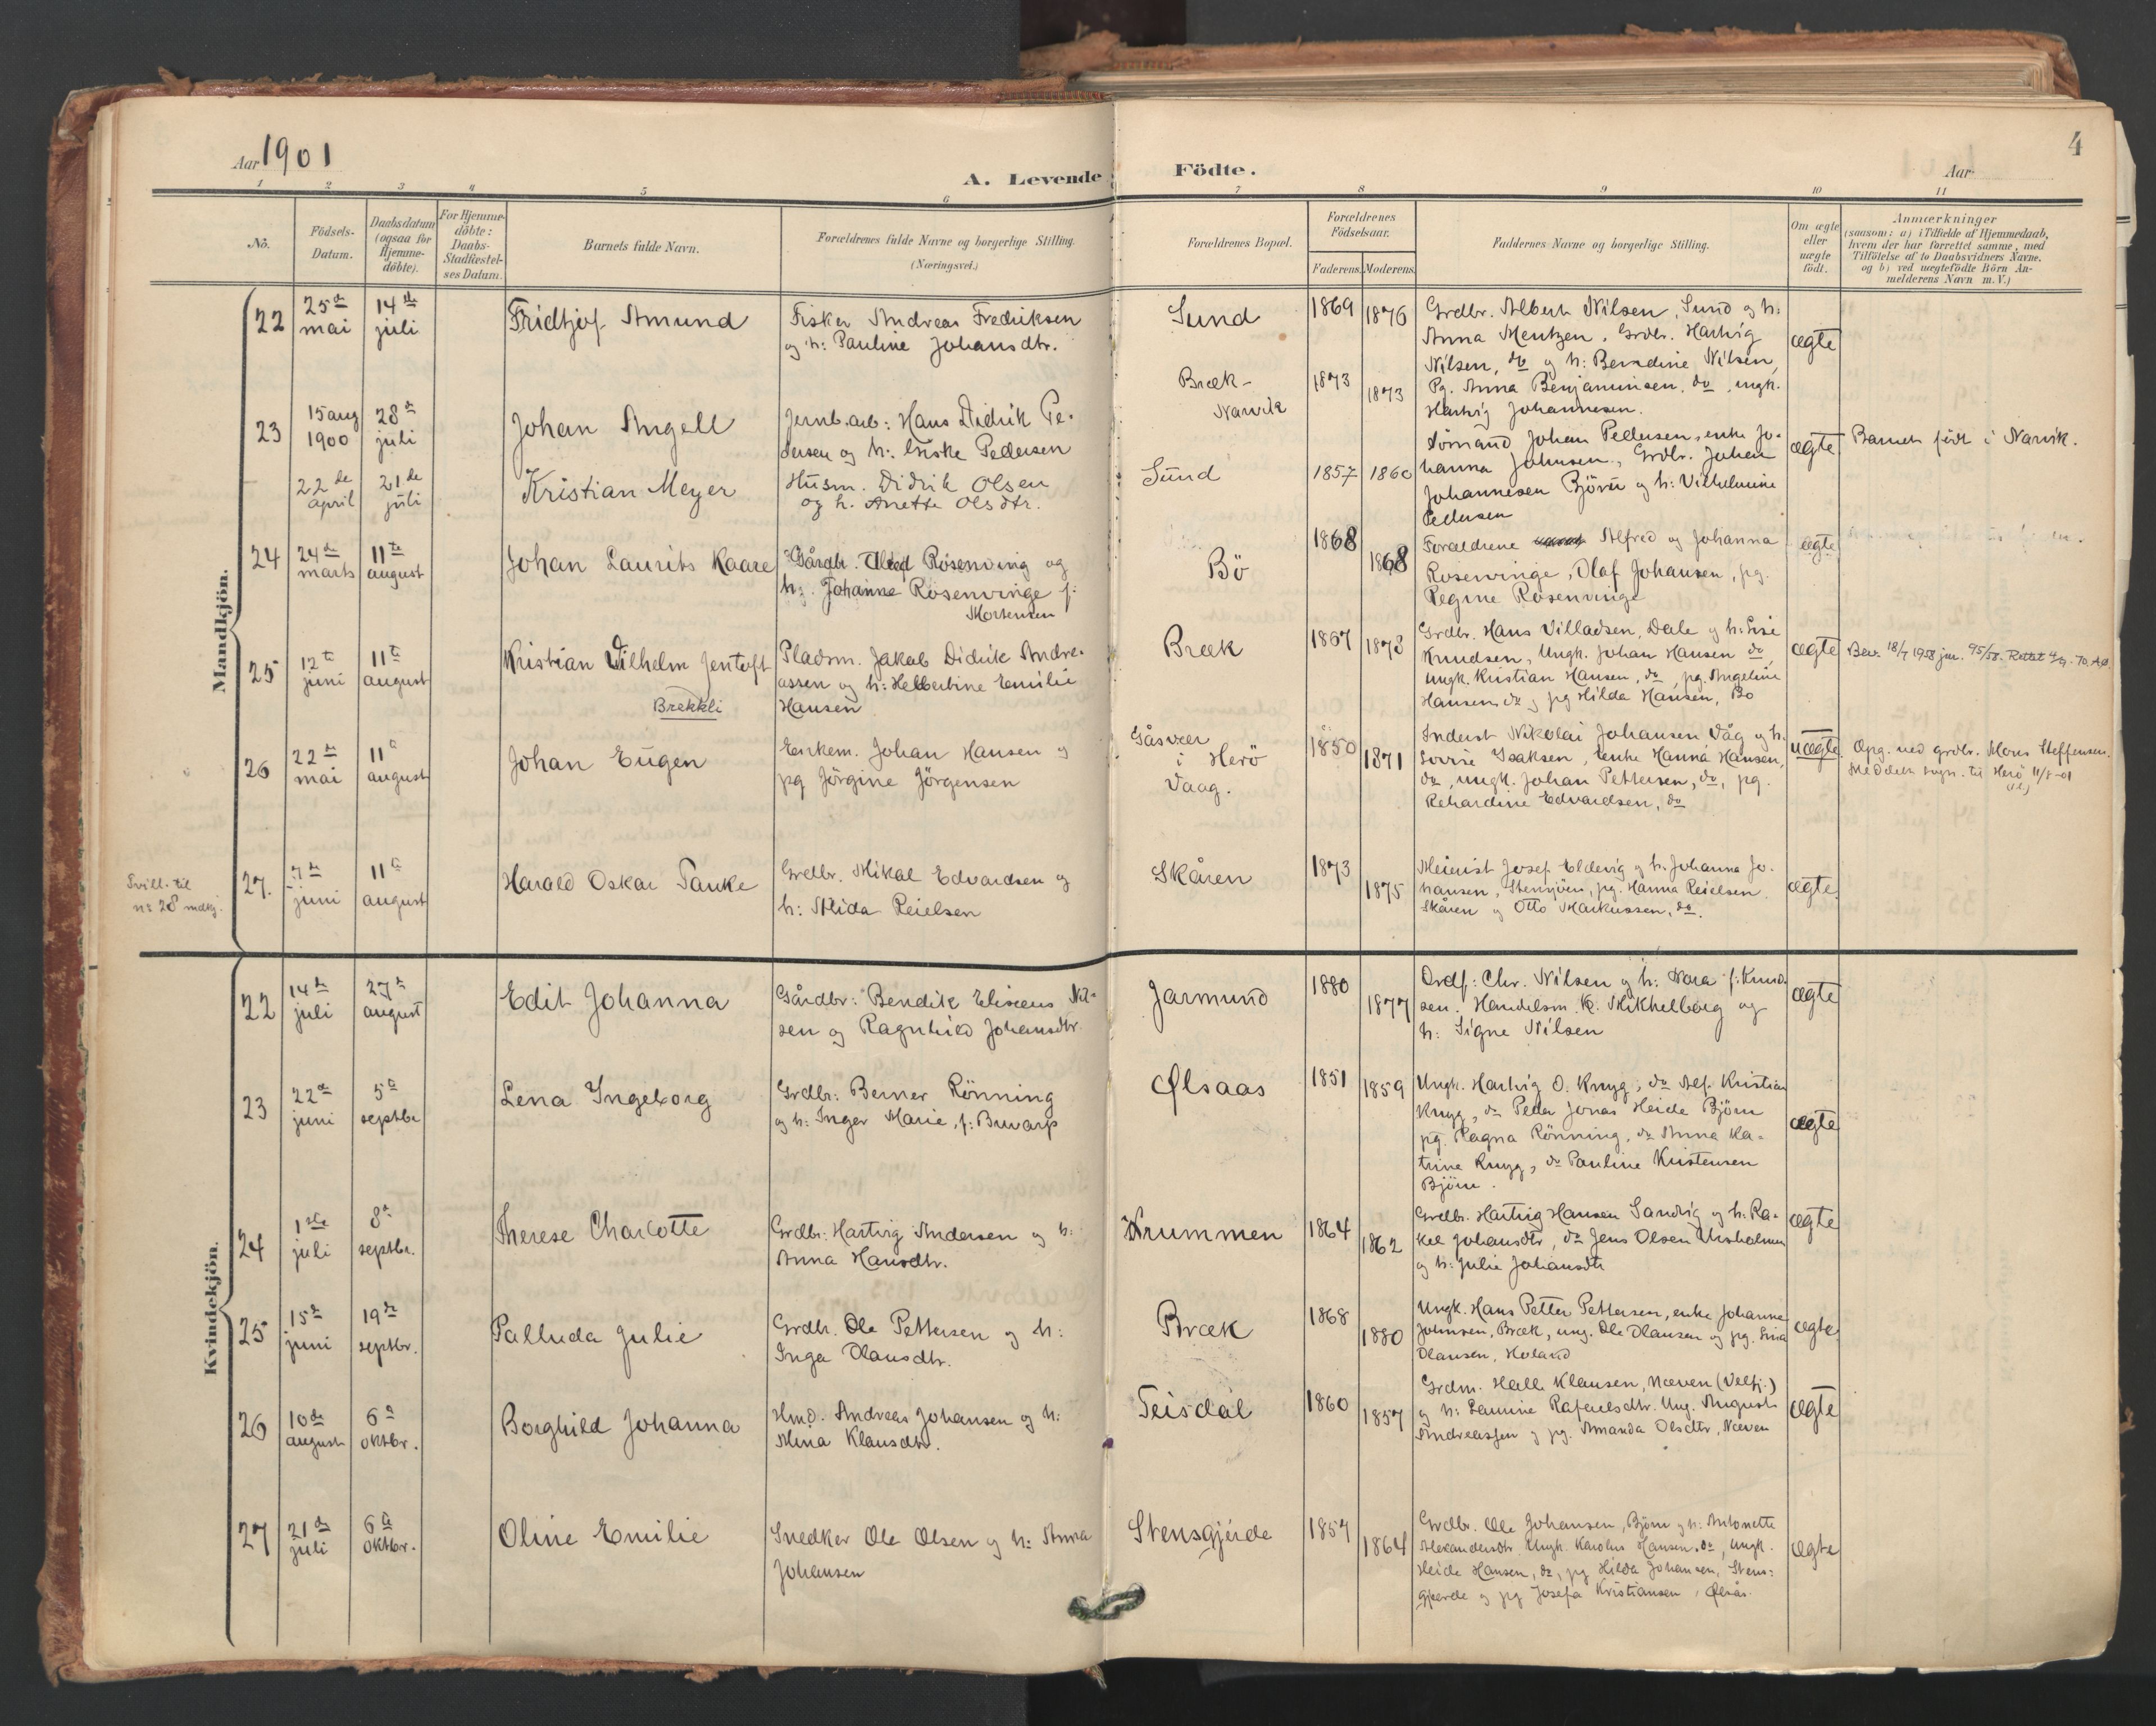 4
Aar 1901
A. Levende Födte.
Aar
1 2 3 4 5 6 7 8 9 10 11
No.
Födsels-Datum.
Daabsdatum (ogsaa for Hjemme-döbte).
For Hjemme-döbte: Daabs-Stadfæstel-ses Datum.
Barnets fulde Navn.
Forældrenes fulde Navne og borgerlige Stilling.
(Næringsvei.)
Forældrenes Bopæl.
Forældrenes Födselsaar.
Faderens. Moderens.
Faddernes Navne og borgerlige Stilling.
Om ægte eller uægte födt.
Anmærkninger
(saasom: a) i Tilfælde af Hjemmedaab,
hvem der har forrettet samme, med
Tilföielse af to Daabsvidners Navne.
og b) ved uægtefödte Börn An-
melderens Navn m. V.)
Mandkjön.
22 25de mai 14de juli
Fridtjof Amund
Fisker Andreas Fredriksen
og h: Pauline Johansdtr.
Sund
1869 1876
Grdbr. Albert Nilsen, Sund og h:
Anna Mentzen, Grdbr. Hartvig
Nilsen, do og h: Beradine Nilsen,
Pg. Anna Benjaminsen, do, ungk.
Hartvig Johannesen.
ægte
23 15 aug 1900 28de juli
Johan Angell
Jernb.arb: Hans Didrik Pe-
dersen og h: Pedersen
Bræk-
Narvik
1873 1873
Johan Pettersen, enke Jo-
hanna Johnsen, Grdbr. Johan
Johannesen Björu og h: Vilhelmine
Pettersen
ægte
Barnet födt i Narvik.
22de april 21de juli
Kristian Meyer
Husm. Didrik Olsen
og h. Anette Olsdtr.
Sund
1857 1860
24 24de marts 11te august
Johan Laurits Kaare
Gårdbr. Alfred Rosenving og
h: Johanna Rosenvinge f:
Mortensen
Bö
1868 1868
Forældrene Alfred og Johanna
Rosenvinge, Olaf Johansen, pg.
Regine Rosenvinge
ægte
25 12te juni 11te august
Kristian Vilhelm Jentoft
Brekkli
Pladsm. Jakob Didrik Andre-
assen og h: Helbertine Emilie
Hansen
Bræk
1867 1873
Grdbr. Hans Villadsen, Dale og h: Lise
Knudsen, Ungk. Johan Hansen do,
ungk. Kristian Hansen, do, pg. Angeline
Hansen do og pg Hilda Hansen, Bo
ægte
Bev. 18/7 1958 jnr. 95/58. Rettet 4/9.70.
26 22de mai 11te august
Johan Eugen
Enkem. Johan Hansen og
pg Jörgine Jörgensen
Gåsvær
i Herö
Vaag.
1850 1871
Inderst Nikolai Johansen Våg og h.
Lovise Isaksen, enke Hanna Hansen,
do, ungk. Johan Pettersen, do, pg.
Rikardine Edvardsen, do
uægte
Opg. ved grdbr. Mons Steffensen.
Meddelt sogn. til Herö 11/8-01
Tvill. til
no 28 mdkj.
27. 7de juni 11te august
Harald Oskar Tanke
Grdbr. Mikal Edvardsen og
h: Alida Reielsen
Skåren
1873 1875
Meierist Josef Eldevig og h. Johanna Jo-
hansen, Stensjöen, pg. Hanna Reielsen
Skåren og Otto Markussen, do.
ægte
Kvindekjön.
22 14de juli 27de august
Edit Johanna
Gårdbr: Bendik Eliseus Nil-
sen og Ragnhild Johansdtr.
Jarmund
1880 1877
Ordf: Chr. Nilsen og h: Nora f: Knud-
sen. Handelsm. K. Mikhelborg og
h: Signe Nilsen
ægte
23 22de juni 5te septbr
Lena Ingeborg
Grdbr: Berner Rönning
og h: Inger Marie, f: Buvarp
Ølsaas
1851 1859
Ungk. Hartvig O. Knyg, do Alf Kristian
Knyg, do Peder Jonas Heide Björn
pg. Ragna Rönning, do Anna Ka-
trine Knyg, do Pauline Kristensen
Björn.
ægte
24 1ste juli 8de septbr.
Therese Charlotte
Grdbr: Hartvig Andersen og h:
Anna Hansdtr.
Krummen
1864 1862
Grdbr. Hartvig Hansen Sandvig og h: Ra-
kel Johansdtr, do Jens Olsen
og h: Julie Johansdtr
ægte
25 15de juni 19de septbr.
Palluda Julie
Grdbr. Ole Pettersen og h:
Inga Olausdtr.
Bræk
1868 1880
Ungk. Hans Petter Pettersen, enke Johanna
Johnsen, Bræk, ung. Ole Olausen og pg. Lina
Olausen, Holand
ægte
26 10de august 6te oktbr.
Borghild Johanna
Hmd. Andreas Johansen og h:
Mina Klausdtr.
Teisdal
1860 1857
Grdm. Halle Klausen, Næven (Velfj.)
og h: Laurine Rafaelsdtr. Ung. August
Andreassen og pg. Amanda Olsdtr, Næven
ægte
27 21de juli 6te oktbr.
Oline Emilie
Snedker Ole Olsen og h: Anna
Johansen
Stensgjerde
1857 1864
Grdbr. Ole Johansen, Björn og h: Antonette
Alexandersdtr. Ungk. Karolus Hansen, do, Ungk.
Heide Hansen, do, pg Hilda Johansen, Stens-
gjerde og pg Josefa Kristiansen, Ølsås.
ægte